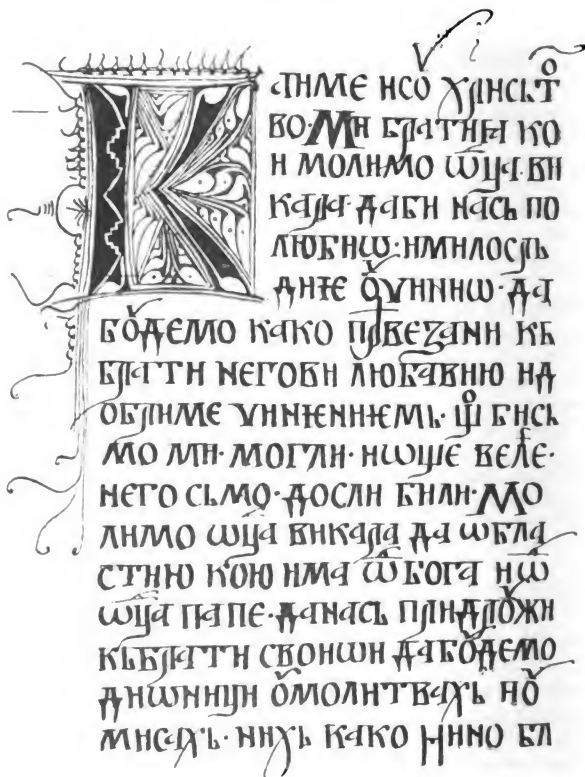 Каиме исо̑ хрисьто
во· ми братиꙗ ко
и молимо ѡца· ви
кара· даби нась по
любиѡ· имилосрь
диѥ ꙋчиниѡ· да
бꙋдемо како првеꙁани кь
брати негови любавию ид
обриме чиниѥниѥмь· що бись
мо ми· могли· иѡще веле·
него сьмо· досли били· мо
лимо ѡца викара да ѡбла
стию кою има ѿ бога иѿ
ѡца папе· данась придрꙋжи
кьбрати своиѡи дабꙋдемо
диѡници ꙋмолитвахь иꙋ
мисахь· нихь како ино бл